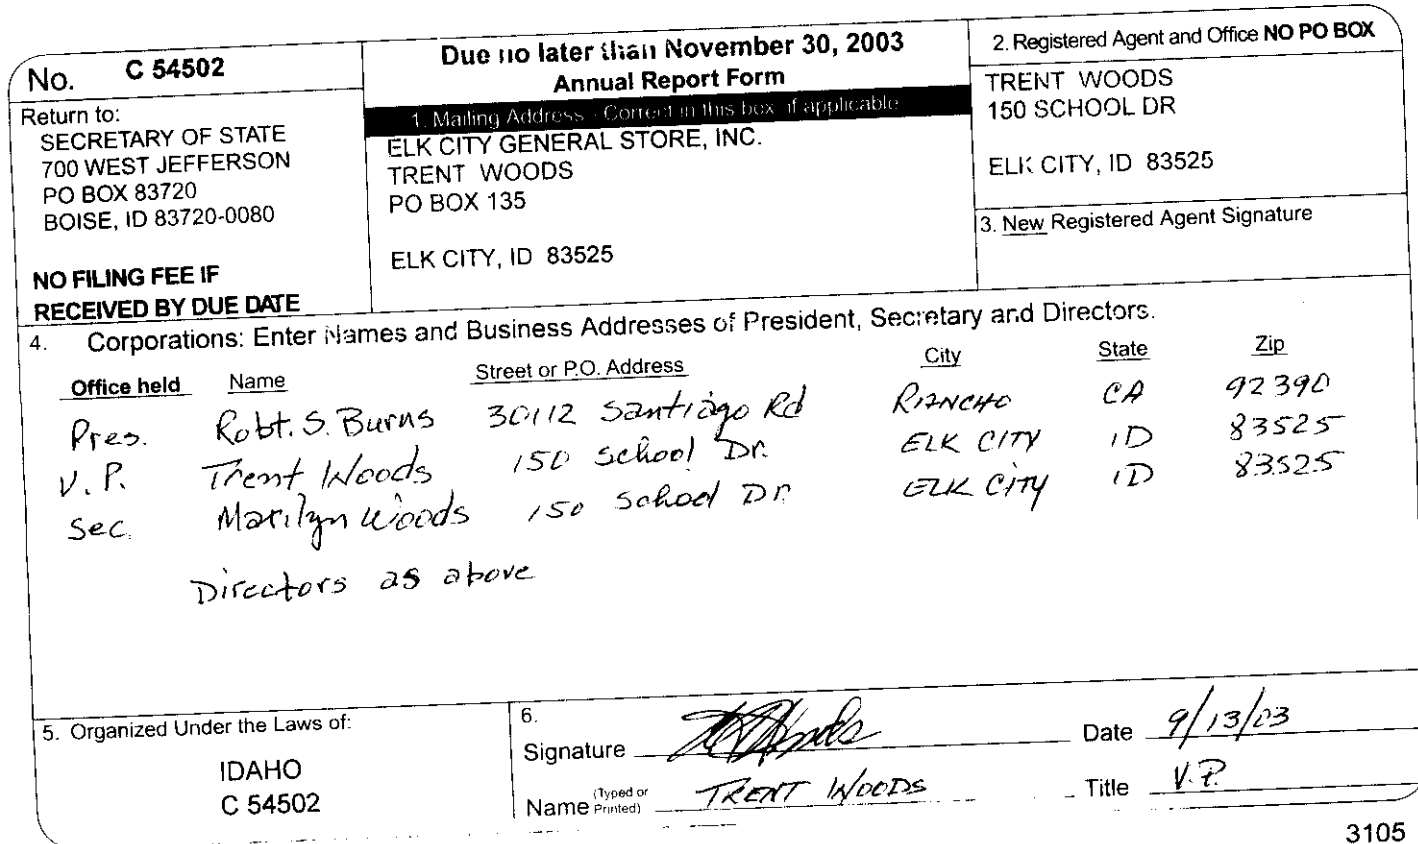 No. C 54502
Return to:
SECRETARY OF STATE
700 WEST JEFFERSON
PO BOX 83720
BOISE, ID 83720-0080
NO FILING FEE IF
RECEIVED BY DUE DATE
Due no later than November 30, 2003
Annual Report Form
1. Mailing Address - Correct in this box if applicable
ELK CITY GENERAL STORE, INC.
TRENT WOODS
PO BOX 135
ELK CITY, ID 83525
2. Registered Agent and Office NO PO BOX
TRENT WOODS
150 SCHOOL DR
ELK CITY, ID 83525
3. New Registered Agent Signature
4. Corporations: Enter Names and Business Addresses of President, Secretary and Directors.
Office held Name Street or P.O. Address City State Zip
Pres. Robt. S. Burns 30112 Santiago Rd RANCHO CA 92390
V.P. Trent Woods 150 School Dr. ELK CITY ID 83525
Sec. Marilyn Woods 150 School Dr. ELK CITY ID 83525
Directors as above
5. Organized Under the Laws of:
IDAHO
C 54502
6.
Signature Date 9/13/03
Name (Typed or Printed) TRENT WOODS Title V.P.
3105